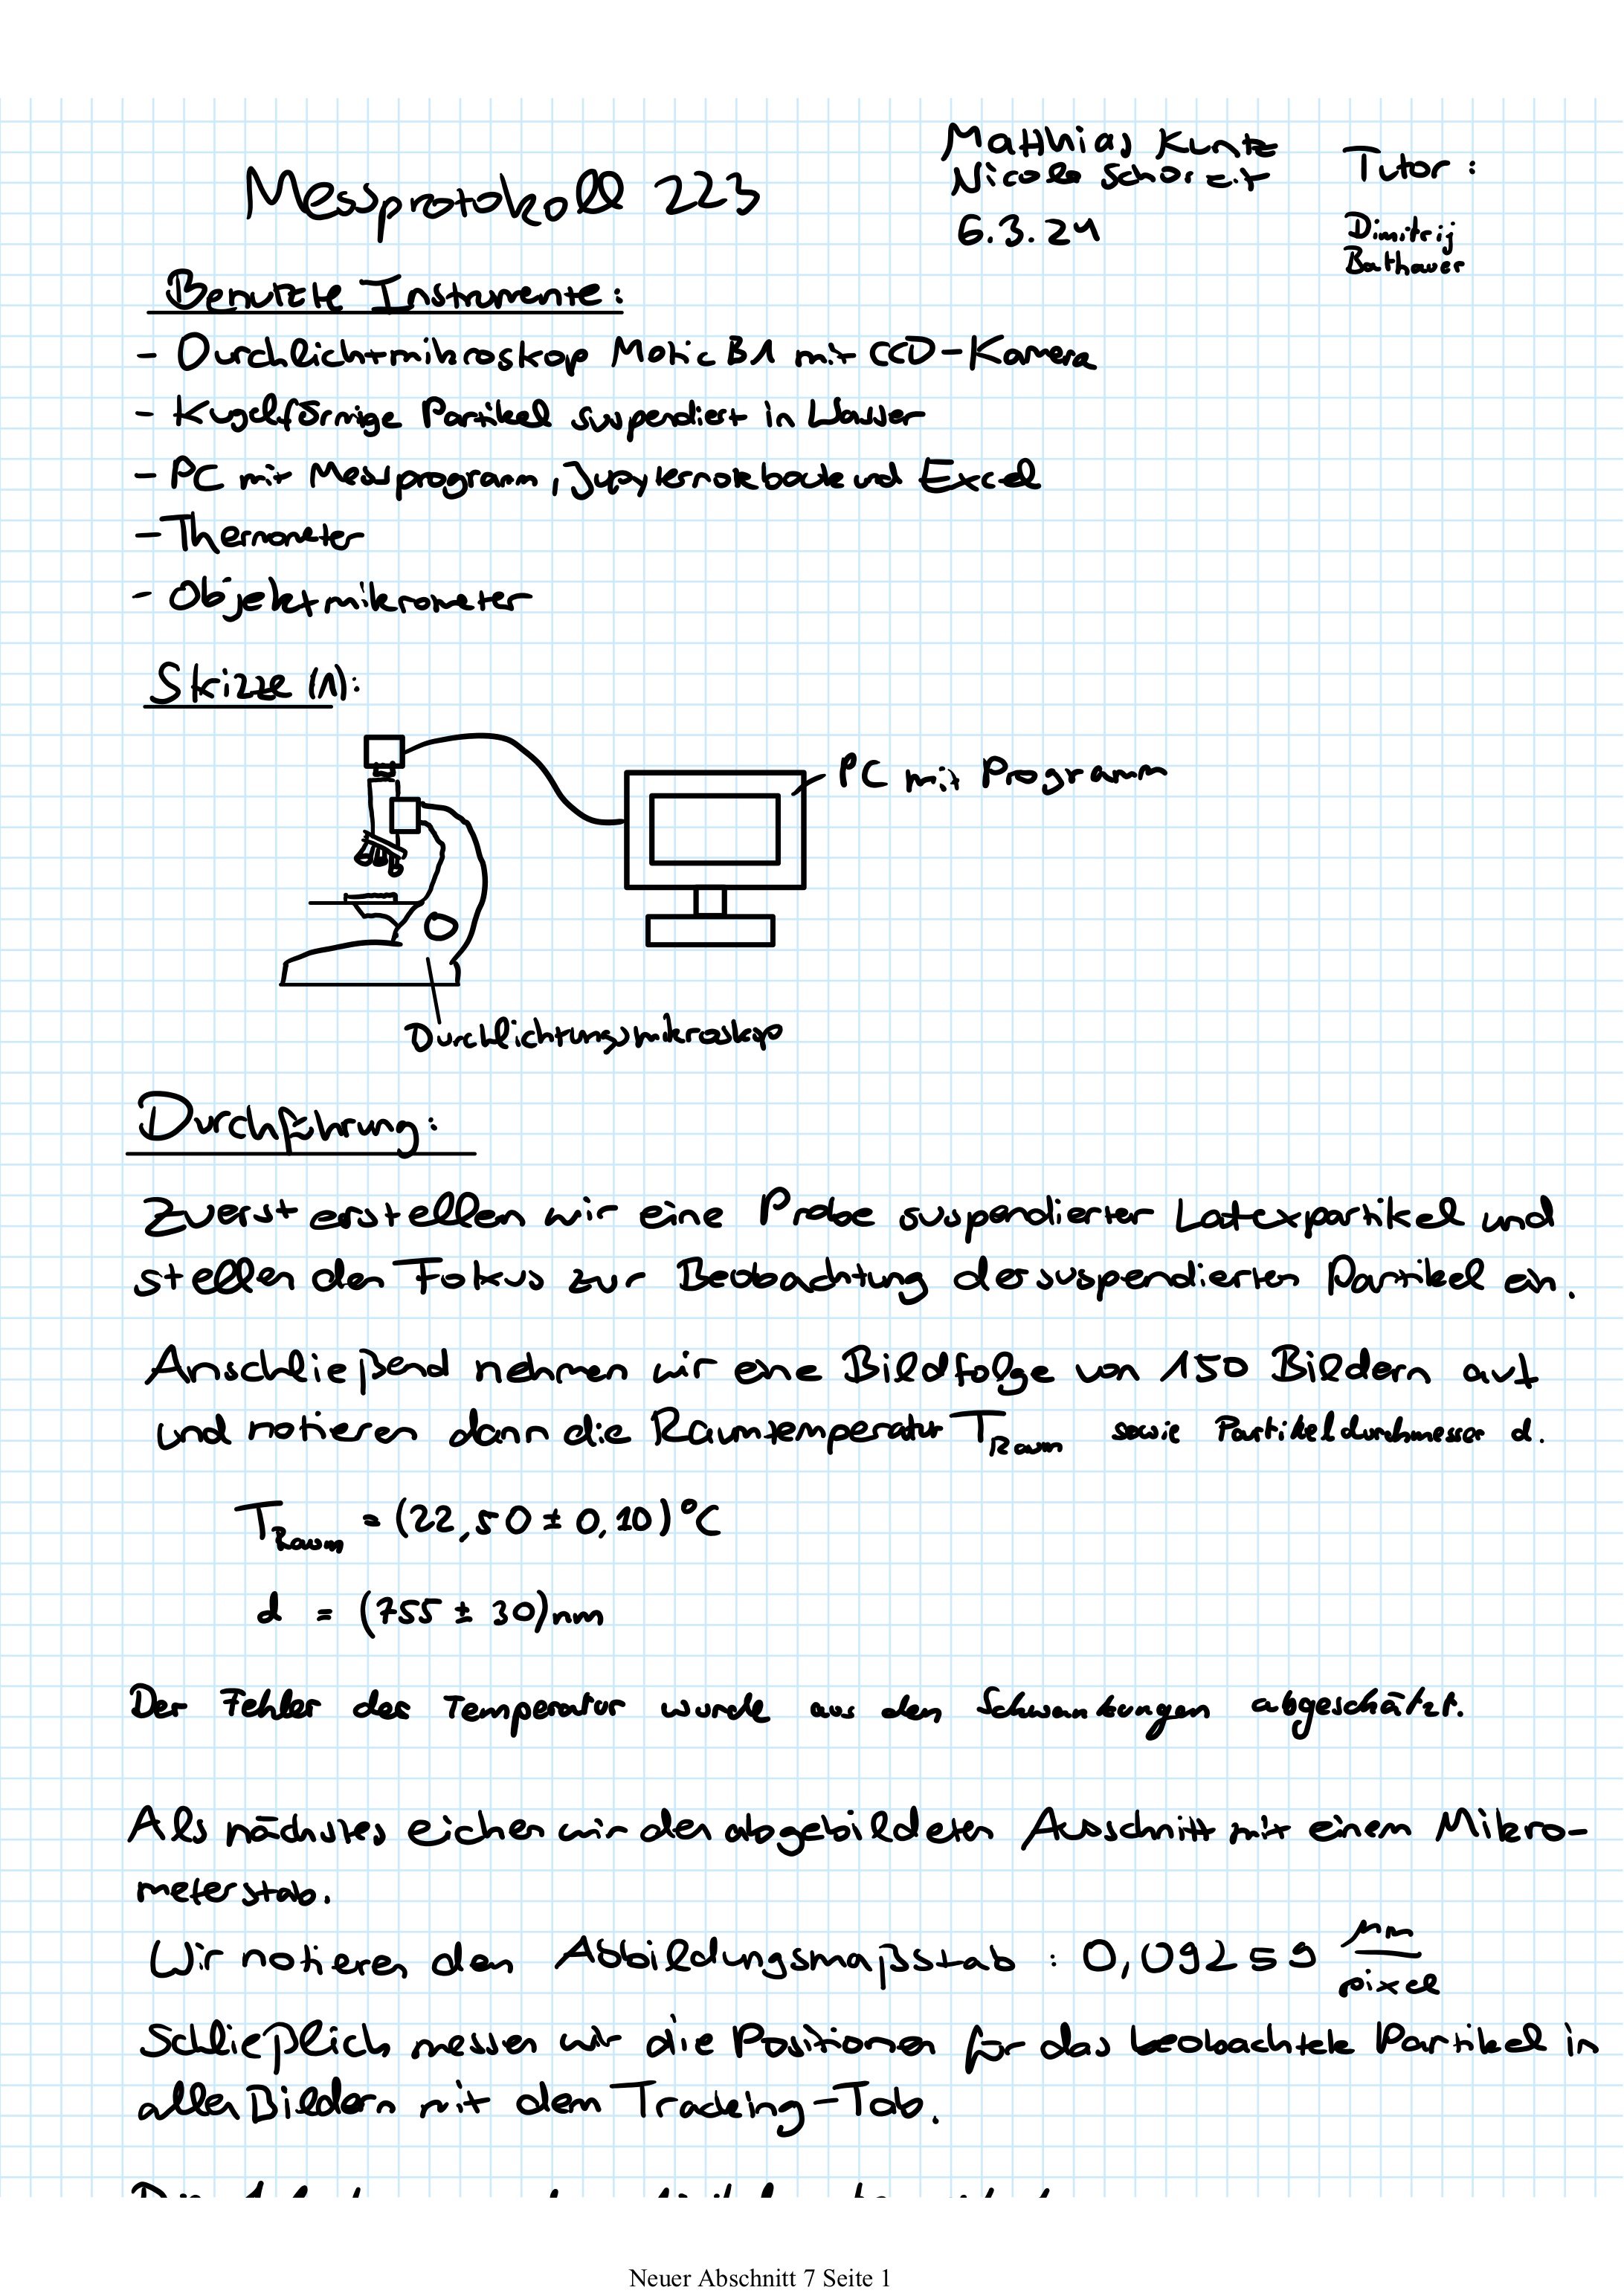 Messprotokoll 223
Matthias Kuntz
Nicola
6.3.24
Tutor :
Dimitrij
Bathauer
Benutzte Instrumente:
- Durchlichtmikroskop Motic B1 mit CCD-Kamera
- Kugelförmige Partikel suspendiert in Wasser
- PC mit Messprogramm, und Excel
- Thermometer
- Objektmikrometer
Skizze (1):
PC mit Programm
Durchlichtungsmikroskop
Durchführung:
Zuerst erstellen wir eine Probe suspendierter Latexpartikel und
stellen den Fokus zur Beobachtung der suspendierten Partikel ein.
Anschließend nehmen wir eine Bildfolge von 150 Bildern auf
und notieren dann die Raumtemperatur T_Raum sowie Partikeldurchmesser d.
T_Raum = (22,50 ± 0,10) °C
d = (755 ± 30) nm
Der Fehler der Temperatur wurde aus den Schwankungen abgeschätzt.
Als nächstes eichen wir den abgebildeten Ausschnitt mit einem Mikro-
meterstab.
Wir notieren den Abbildungsmaßstab : 0,09259 μm/pixel
Schließlich messen wir die Positionen für das beobachtete Partikel in
allen Bildern mit dem Tracking-Tab.
Neuer Abschnitt 7 Seite 1